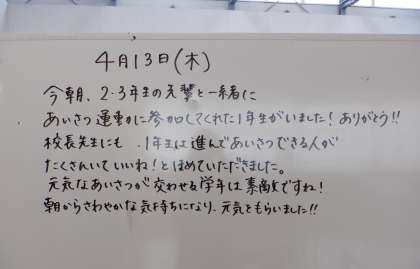 4月13日(木)
今朝、2・3年生の先輩と一緒に
あいさつ運動に参加してくれた1年生がいました!ありがとう!!
校長先生にも、1年生は進んであいさつできる人が
たくさんいていいね!とほめていただきました。
元気なあいさつが交わせる学年は素敵ですね!
朝からさわやかな気持ちになり、元気をもらいました!!